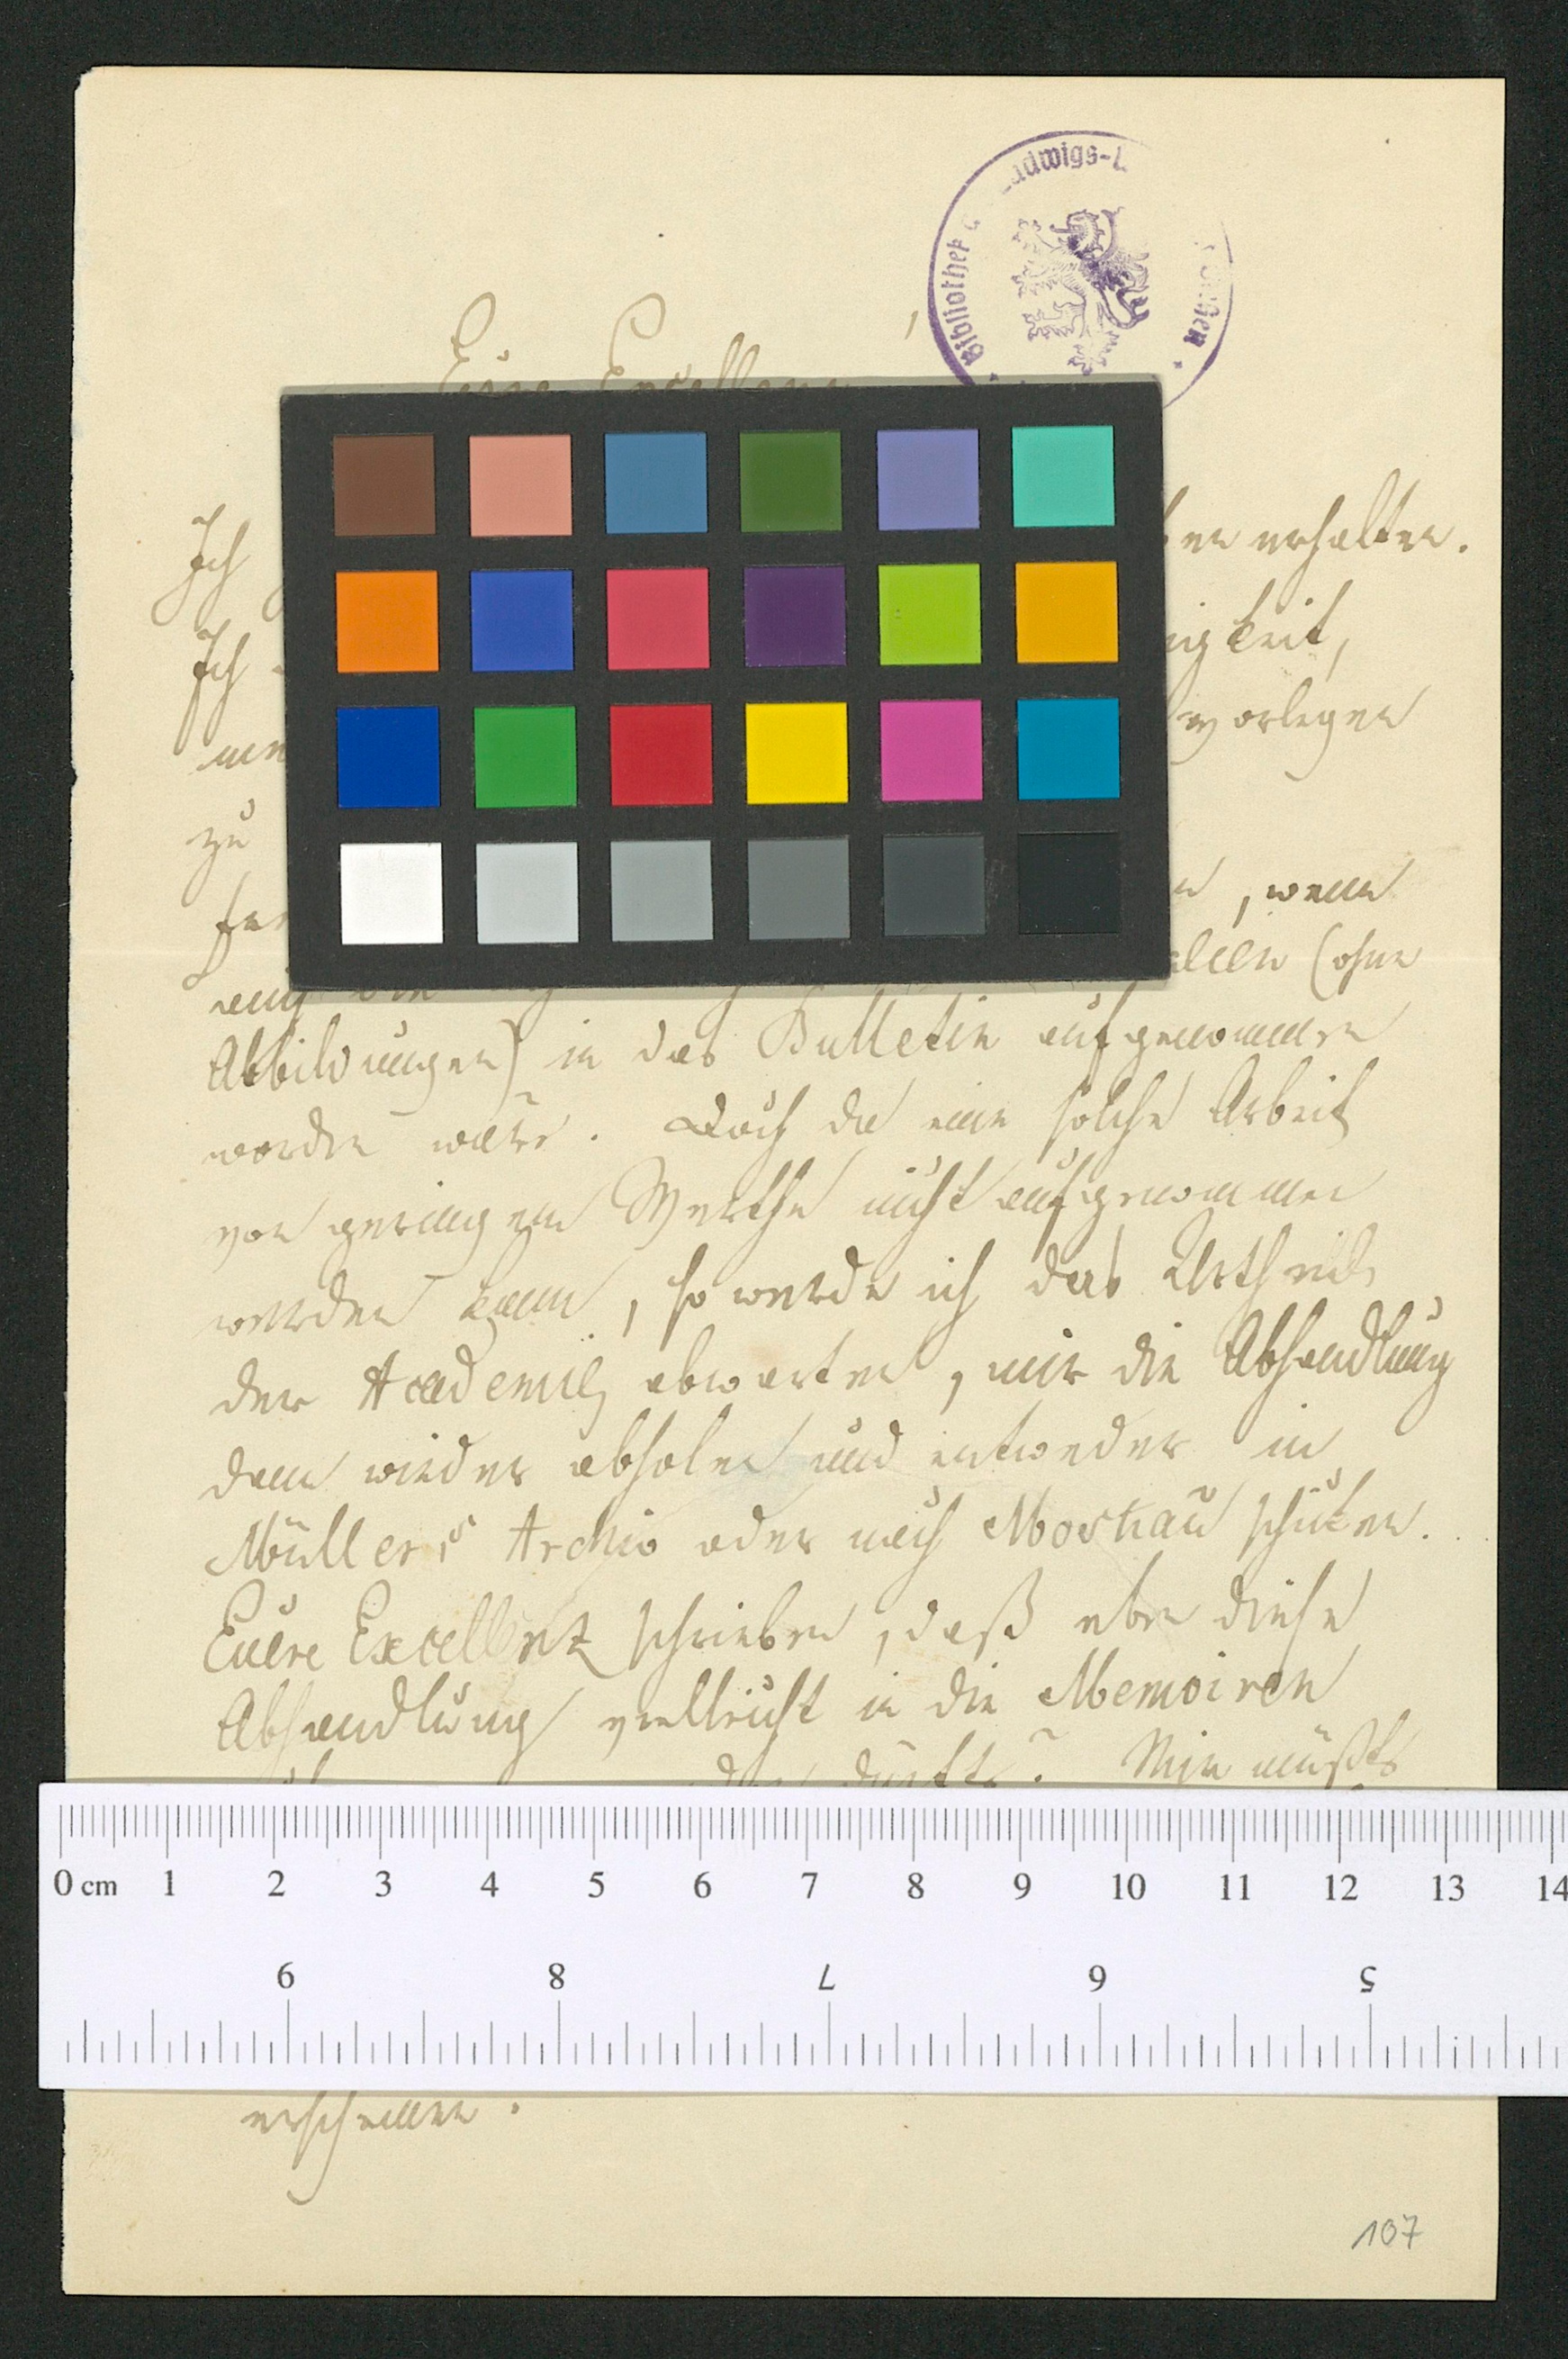 Bibliothek
Eure Excellenz
,
Ich
erhalten.
Ich
igkeit,
vorlegen
zu
, wenn
(ohne
Abbildungen) in das Bulletin aufgenommen
worden wäre. Doch da eine solche Arbeit
von geringem Werthe nicht aufgenommen
werden kann, so werde ich das Urtheil
der Academie abwarten, mir die Abhandlung
dann wieder abholen und entweder in
Müllers Archiv oder nach Moskau schicken.
Euere Excellenz schrieben, daß eben diese
Abhandlung vielleicht in die Memoiren
dürfte? Mir müßte
0 cm 1 2 3 4 5 6 7 8 9 10 11 12 13 14
9 8 7 6 5
erscheinen.
107